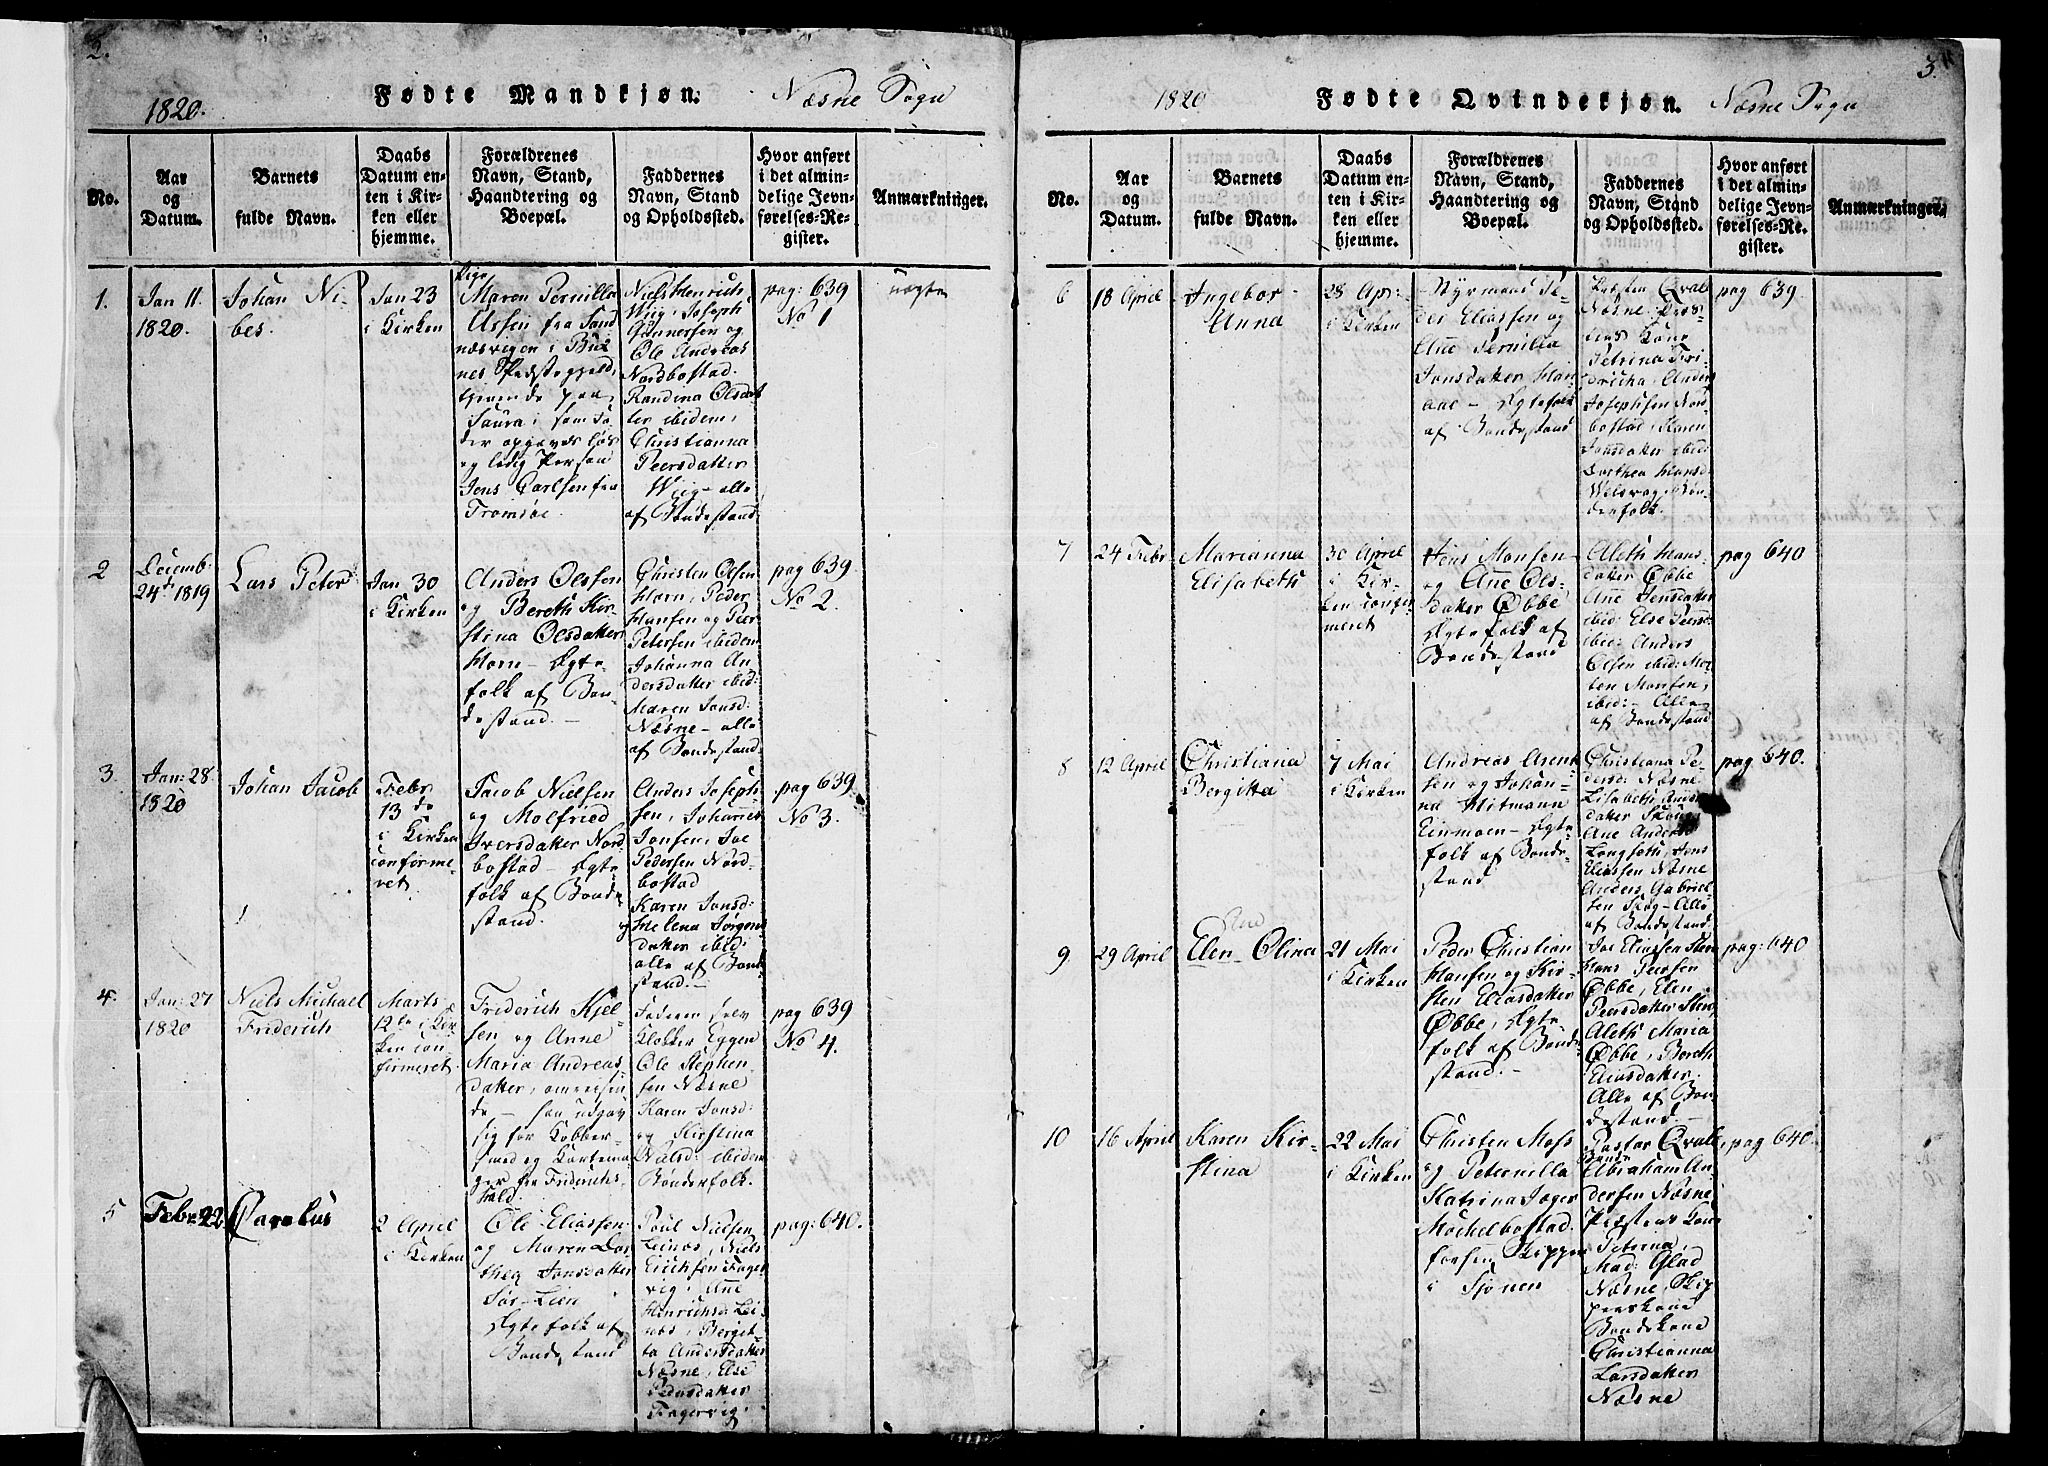 2.
1820.
Fødte Mandkjøn.
Næsne Sogn
No.
Aar
og
Datum.
Barnets
fulde Navn.
Daabs
Datum en-
ten i Kir-
ken eller
hjemme.
Forældrenes
Navn, Stand,
Haandtering og
Boepæl.
Faddernes
Navn, Stand
og Opholdssted.
Hvor anført
i det almin-
delige Jevn-
førelses-Re-
gister.
Anmærkninger.
1.
Jan 11.
1820.
Johan Ni-
bes.
Jan 23
i Kirken
Pige
Maren Pernilla
Assen fra Sand
næsvigen i Bux
nes Præstegjeld,
tjenende paa
Saura, som Fa-
der opgeves løs
og ledig Person
Jens Carlsen fra
Tromsøe.
Niels Henrich
Wiig, Joseph
Gunnersen og
Ole Andreas
Nordbostad.
Randina Olsdat
ter ibidem,
Christianna
Peersdatter
Wiig - alle
af Bondestand
pag: 639
No 1
uægte
2
Decemb.
24de 1819
Lars Peter
Jan 30
i Kirken
Anders Olssen
og Bereth Kir-
stina Olsdatter
Horn - Ægte-
folk af Bon-
destand. -
Christen Olsen
Horn, Peder
Hansen og Peer
Petersen ibidem
Johanna An-
dersdatter ibid:
Maren Jonsd:
Næsne - alle
af Bondestand.
pag 639.
No 2.
3.
Jan: 28.
1820
Johan Jacob
Febr
13de
i Kirken
confirme-
ret.
Jacob Nielsen
og Molfried
Iversdatter Nord
bostad - Ægte-
folk af Bonde
stand.
Anders Joseph-
sen, Johannes
Jonsen, Joe
Pedersen Nord-
bostad
Karen Jonsd:
og Helena Jørgens
datter ibid:
alle af Bonde
stand. -
pag 639
No 3.
4.
Jan: 27
1820
Niels Michael
Friderich
Marts
12te i Kir-
ken con
firmeret.
Friderich Kjel-
sen og Anne
Maria Andreas
datter, omreisen-
de - han udgav
sig for Kobber-
smed og Kartema-
ger fra Friderichs-
hald.
Faderen selv
Klokker Eggen
Ole Stephen-
sen Næsne
Karen Jonsd:
og Kirstina
Nielsd: ibidem
Bønderfolk.
pag 639
No 4.
5
Febr. 22
Carolus
2 April
i Kirken
Ole Eliassen
og Maren Dor-
thea Jonsdatter
Sør-Lien
Ægtefolk af
Bondestand
Poul Nielsen
Leinæs, Niels
Erichsen Finger-
vig, Ane
Henrichsd: Lei-
næs, Bergit-
ta Andersdatter
Næsne, Else
Pedersdatter
Fingervig.
pag: 640.
3.
1820
Fødte Qvindekjøn.
Næsne Sogn
No.
Aar
og
Datum.
Barnets
fulde Navn.
Daabs
Datum en-
ten i Kir-
ken eller
hjemme.
Forældrenes
Navn, Stand,
Haandtering og
Boepæl.
Faddernes
Navn, Stand
og Opholdssted.
Hvor anført
i det almin-
delige Jevn-
førelses-Re-
gister.
Anmærkninger.
6
18 April
Ingebor
Anna
28 Apr:
i Kirken
Styrmand Pe-
der Eliassen og
Ane Pernilla
Jonsdatter Han-
- Ægtefolk
af Bondestand
Præsten Qvale
Næsne Præs-
tens Kone
Petrina Fri-
dricha, Anders
Josephsen Nord-
bostad, Karen
Jonsdatter ibid:
Dorthea Hansd:
Welsvaag, Bøn-
derfolk.
pag 639.
7
24 Febr
Marianna
Elisabeth
30 April
i Kir-
ken confir
meret
Jens Monsen
og Ane Ols-
datter Øbbe
Ægtefolk af
Bondestand
Aleth Hans-
datter Øbbe
Ane Jensdatter
ibid: Else Jensd:
ibid: Anders
Olsen ibid: Mor-
ten Monsen,
ibid: - Alle
af Bondestand
pag 640
8
12 April
Christiana
Bergitta
7 Mai
i Kirken
Andreas Arent-
sen og Johan-
na Hitmann
Einmoen - Ægte
folk af Bonde-
stand
Christiana Pe-
dersd: Næsne
Lisabeth
datter
Ane Anders:
Langseth, Jens
Eliassen Næsne
Anders Gabriel-
sen Skog - Alle
af Bondestand.
pag 640.
9
29 April
Ane
Elen Olina
21 Mai
i Kirken
Peder Christian
Hansen og Kir-
sten Eliasdatter
Øbbe, Ægte-
folk af Bonde
stand. -
Joe Eliassen
Hans Peersen
Øbbe, Elen
Peersdatter
Aleth Maria
Øbbe, Bereth
Eliasdatter.
Alle af Bon-
destand. -
pag: 640
10
16 April
Karen Kir-
stina
22 Mai
i Kirken
Christen Moss
og Peternilla
Katrina Jæger
Mochelbostad
forsen Skipper
i Sjønen
Pastor Qvale,
Bonde
Abraham An-
dersen Næsne,
Præstens Kone
Petrina,
Mad: Glad
Næsne, Skip-
perskone
Bondekone
Christianna
Larsdatter
Næsne
pag 640.